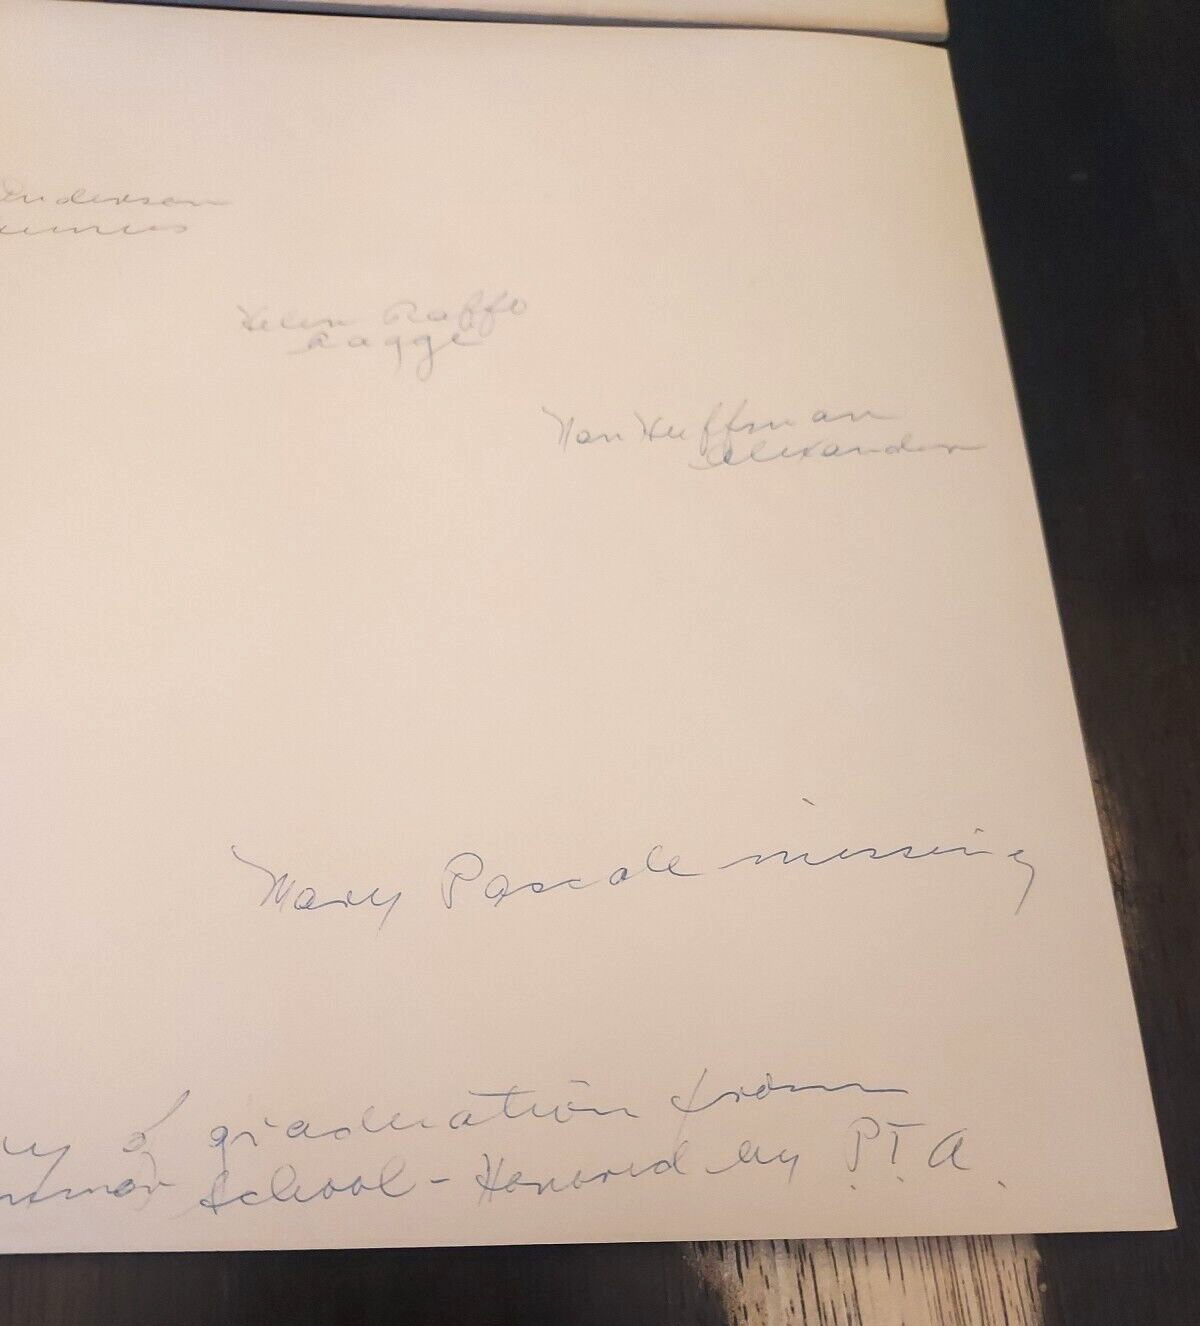 Anderson
Helen Raffo
Ragge
Nan Huffman
Alexander
Mary Pascale missing
of graduation from
School - Honored by P.T.A.